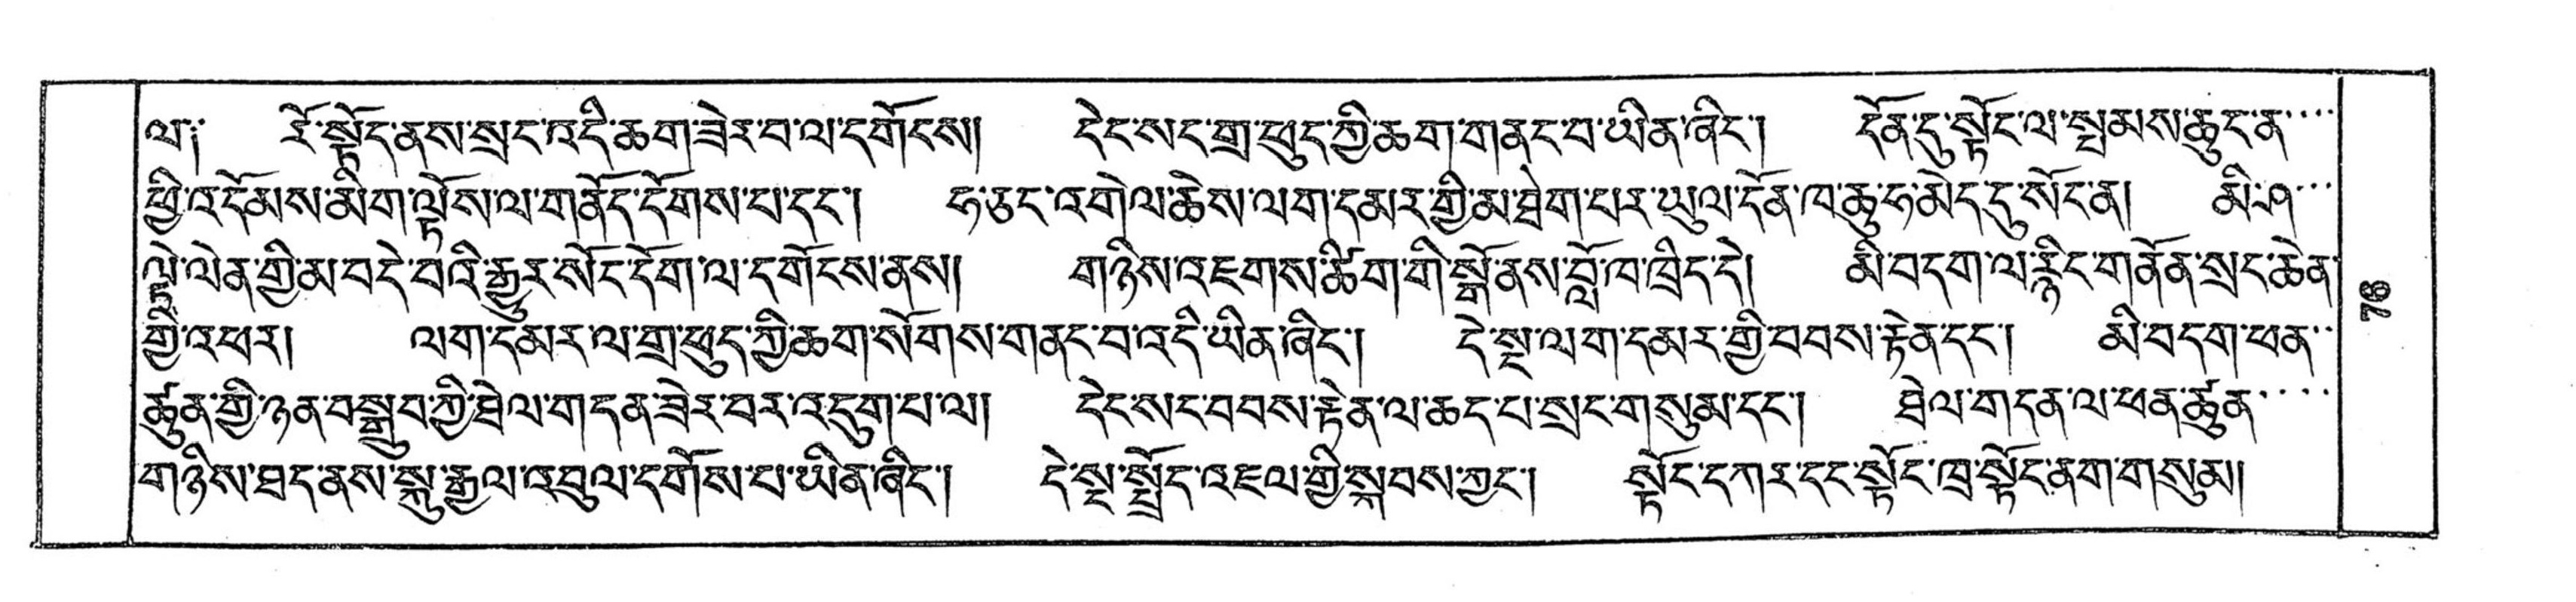 ལ༑ རོ་སྟོད་ནས་སྲང་འདི་ཆག་ཟེར་བ་ལ་དགོངས། དེང་སང་གྲ་ཕུད་ཀྱི་ཆག་གནང་བ་ཡིན་ཞིང་། དོན་དུ་སྟོང་ལ་སྤམས་ཆུང་ན་་་་
ཕྱི་འདོམས་མིག་ལྟོས་ལ་གནོད་དོགས་པ་དང་། ཧ་ཅང་འགེལ་ཆེས་ལག་དམར་གྱི་མ་ཐེག་པར་ཡུལ་དོན་ཁ་ཆུ་ཧ་མེད་དུ་སོང་ན། མི་ཤ་་་་
ལྟེ་ལེན་གྱི་མ་བདེ་བའི་རྒྱུར་སོང་དོག་ལ་དགོངས་ནས། གཉིས་འཇགས་ཚིག་གི་སྒོནས་བློ་ཁ་ཁྲིད་དེ། མི་བདག་ལ་རྙིང་གནོན་སྲང་ཆེན་
གྱི་འཕར། ལག་དམར་ལ་གྲ་ཕུད་ཀྱི་ཆག་སོགས་གནང་བ་འདི་ཡིན་ཞིང་། དེ་སྔ་ལག་དམར་གྱི་བབས་རྟེན་དང་། མི་བདག་ཕན་་་
ཚུན་གྱི་ཉན་བསྒྲུབ་ཀྱི་ཐེལ་གདན་ཟེར་བར་འདུག་པ་ལ། དེང་སང་བབས་རྟེན་ལ་ཆད་པ་སྲང་གསུམ་དང་། ཐེལ་གདན་ལ་ཕན་ཚུན་་་་་
གཉིས་ཐད་ནས་སྐུ་རྒྱལ་འབུལ་དགོས་པ་ཡིན་ཞིང་། དེ་སྔ་སྤྲོད་འཇལ་གྱི་སྐབས་ཀྱང་། སྟོང་དཀར་དང་སྟོང་ཁྲ་སྟོང་ནག་གསུམ།